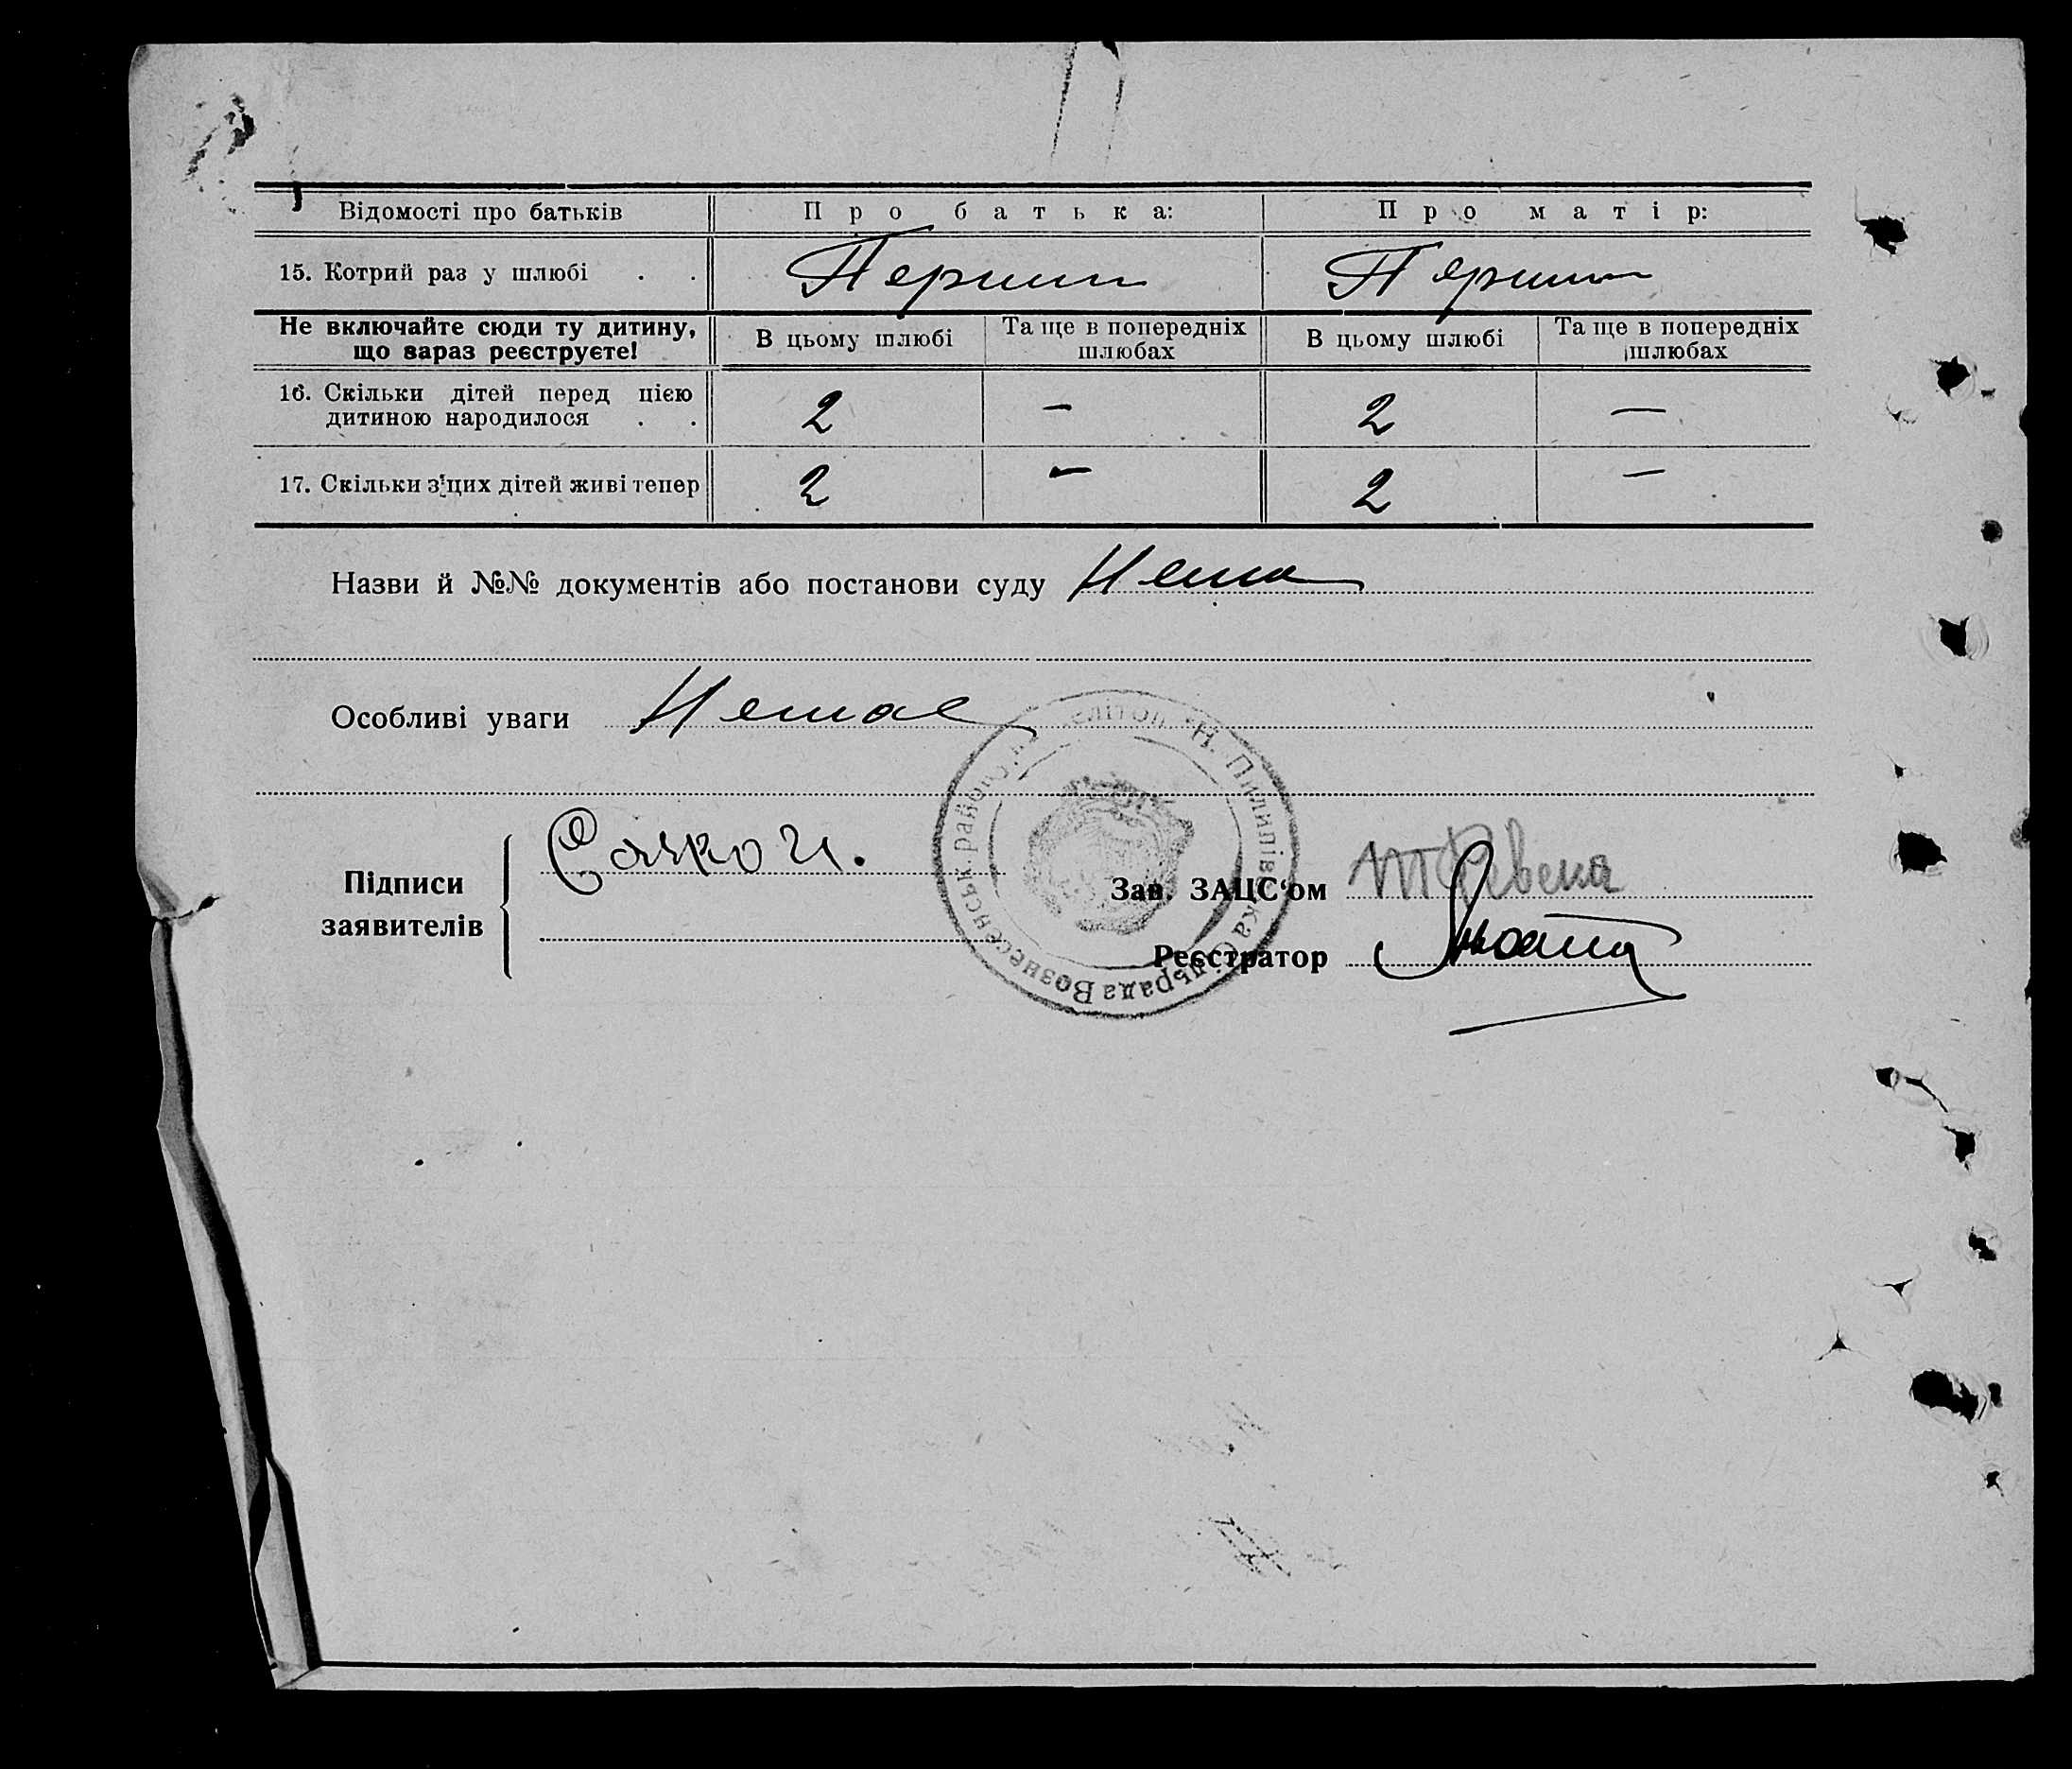 Відомості про батьків Про батька: Про матір:
15. Котрий раз у шлюбі . . Перший Перший
Не включайте сюди ту дитину, що зараз реєструєте! В цьому шлюбі Та ще в попередніх шлюбах В цьому шлюбі Та ще в попередніх шлюбах
16. Скільки дітей перед цією дитиною народилося . . 2 — 2 —
17. Скільки з цих дітей живі тепер 2 — 2 —
Назви й №№ документів або постанови суду Нема
Особливі уваги Немає
Н. Пилипівська Сільрада Вознесенськ. району
Підписи заявителів
Зав. ЗАЦС‘ом
Реєстратор